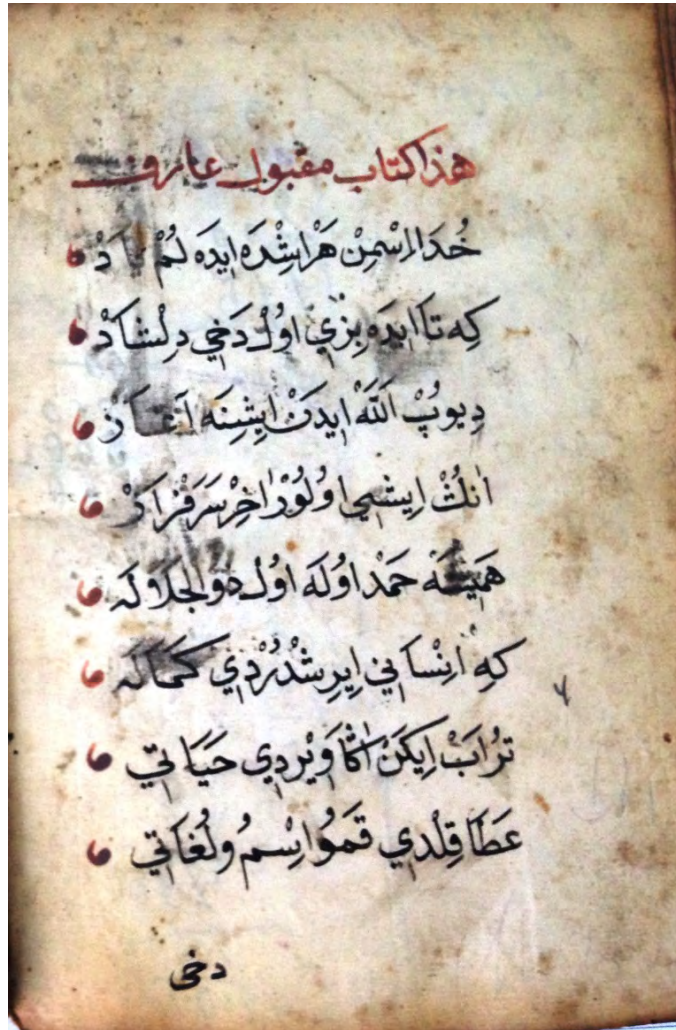 هذا كتاب مقبول عارف
خُدَا اسْمِنْ هَرْ اِشْدَه ايدَه لُمْ يَادْ
كِه تَا ايدَه بِزِي اوُلْ دَخِي دِلْشَادْ
دِيوُبْ اَللّٰه ايدَنْ اِيشِنَه آغَازْ
اَنُكْ اِيشِي اوُلُوْرْ اخِرْ سَرَفْرَازْ
هَمِيشَه حَمْد اوُلَه اوُل ذوالجلَالَه
كِه اِنْسَانِي اِيرِشْدُرْدِي كَمَالَه
تُرَابْ اِيكَنْ اَكَا وِيْردِي حَيَاتِي
عَطَا قِلْدِي قَمُو اِسْمُ ولُغَاتِي
دخى